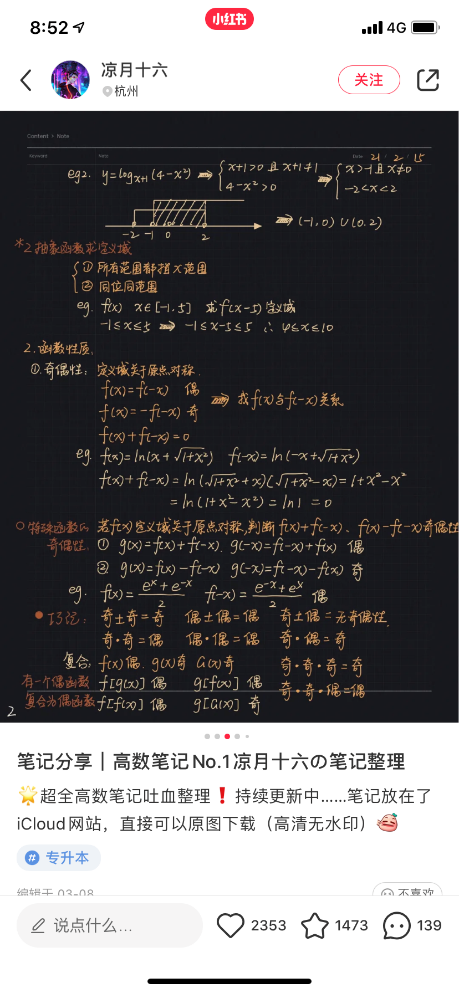 8:52
小红书
4G
凉月十六
杭州
关注
Content > Note
Keyword
Note
Date 21 / 2 / 15
eg2. y=log_{x+1}(4-x²) ⇒ { x+1>0 且 x+1≠1
4-x²>0
⇒ { x>-1 且 x≠0
-2<x<2
-2 -1 0 2
⇒ (-1,0)∪(0.2)
*2.抽象函数求定义域
{ ① 所有范围都指 x 范围
② 同位同范围
eg. f(x) x∈[-1,5] 求f(x-5)定义域
-1≤x≤5 ⇒ -1≤x-5≤5 ∴ 4≤x≤10
2.函数性质.
①.奇偶性: 定义域关于原点对称.
f(x)=f(-x) 偶
f(x)=-f(-x) 奇
⇒ 找f(x)与f(-x)关系
f(x)+f(-x)=0
eg. f(x)=ln(x+√1+x²) f(-x)=ln(-x+√1+x²)
f(x)+f(-x)=ln(√1+x²+x)(√1+x²-x)=1+x²-x²
=ln(1+x²-x²)=ln1=0
○特殊函数的奇偶性: 若f(x)定义域关于原点对称,判断f(x)+f(-x)、f(x)-f(-x)奇偶性
① g(x)=f(x)+f(-x). g(-x)=f(-x)+f(x) 偶
② g(x)=f(x)-f(-x) g(-x)=f(-x)-f(x) 奇
eg. f(x)=\frac{e^x+e^{-x}}{2} f(-x)=\frac{e^{-x}+e^x}{2} 偶
●巧记: 奇±奇=奇 偶±偶=偶 奇±偶=无奇偶性.
奇·奇=偶 偶·偶=偶 奇·偶=奇
复合: f(x)偶. g(x)奇 G(x)奇 奇·奇·奇=奇
有一个偶函数 f[g(x)] 偶 g[f(x)] 偶 奇·奇·偶=偶
复合为偶函数 f[f(x)] 偶 g[G(x)] 奇
2
笔记分享｜高数笔记No.1凉月十六の笔记整理
🌟超全高数笔记吐血整理❗持续更新中……笔记放在了
iCloud网站，直接可以原图下载（高清无水印）
# 专升本
编辑于 03-08
不喜欢
说点什么...
2353
1473
139